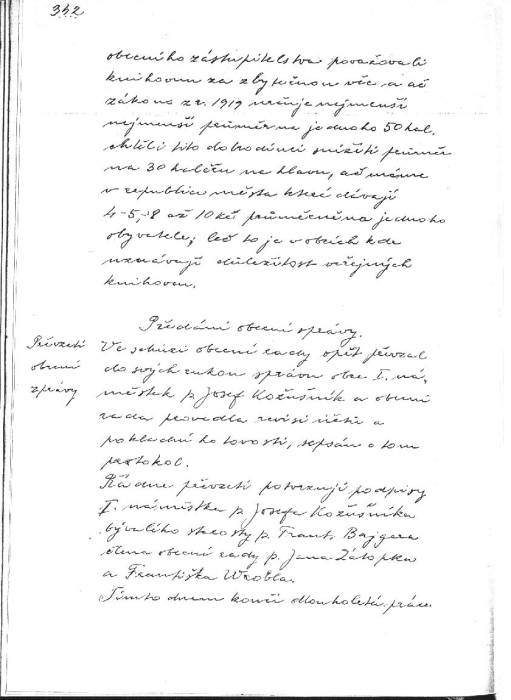 342
obecního zástupitelstva považovali
knihovnu za zbytečnou věc a ač
zákon z r. 1919 určuje nejmenší
nejmenší průměr na jednoho 50 hal.
chtěli tito dobrodinci snížiti průměr
na 30 haléřů na hlavu, ač máme
v republice města které dávají
4-5,-8 až 10 kč průměrně na jednoho
obyvatele; leč to je v obcích kde
uznávají důležitost veřejných
knihoven.
Předání obecní správy.
Převzetí
obecní
správy
Ve schůzi obecní rady opět převzal
do svých rukou správu obce I. ná-
městek p. Josef Kožušník a obecní
rada provedla revisi účtů a
pokladní hotovosti, sepsán o tom
protokol.
Řádné převzetí potvrzují podpisy
I. náměstka p. Josefa Kožušníka
bývalého starosty p. Frant. Bajgera
člena obecní rady p. Jana Zátopka
a Františka Wrobla.
Tímto dnem končí dlouholetá práce